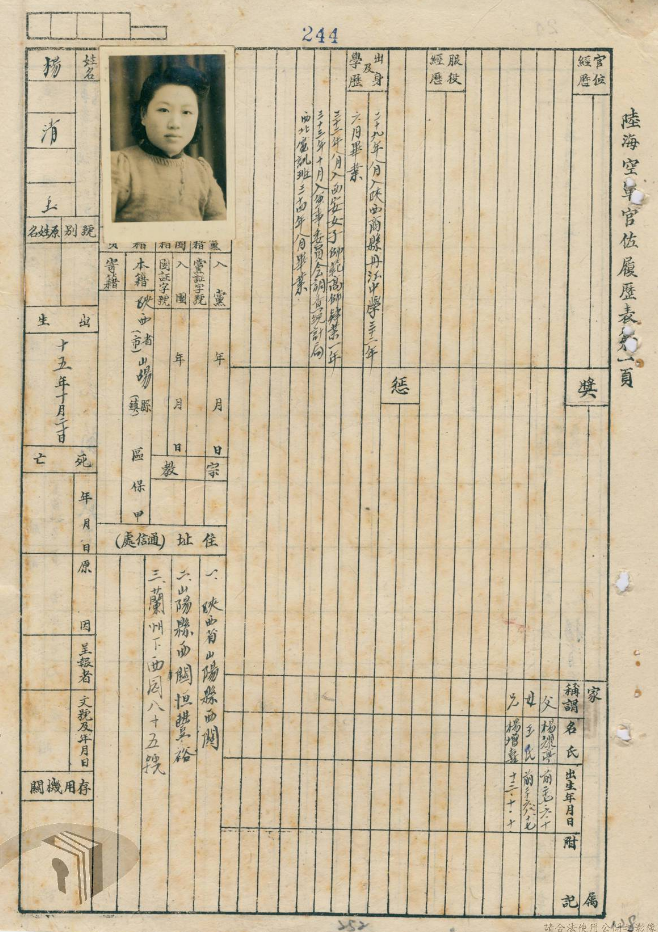 244
陸海空軍官佐履歷表第一頁
官位經歷
服役經歷
出身及學歷
二十九年八月入陝西商縣丹江中學三十二年
六月畢業
三十二年八月入西安女子師範高師肄業一年
三十三年十月入軍事委員會調查統計局
西北電訊班三十四年八月畢業
獎
懲
家屬
稱謂
名氏
出生年月日
附記
父
母
王氏
兄
十三・十・十
姓名
楊清
別號
原姓名
出生
十五年十月二十日
死亡
年月日
原因
呈報者
文號及年月日
存用機關
黨籍
入黨
年月日
黨證字號
團籍
入團
年月日
團證字號
籍貫
本籍
陝西省(市)山陽縣(鎮)區保甲
寄籍
宗教
住址(通信處)
一、陝西省山陽縣西關
二、山陽縣西關恒豐裕
三、蘭州下西園八十五號
252
128